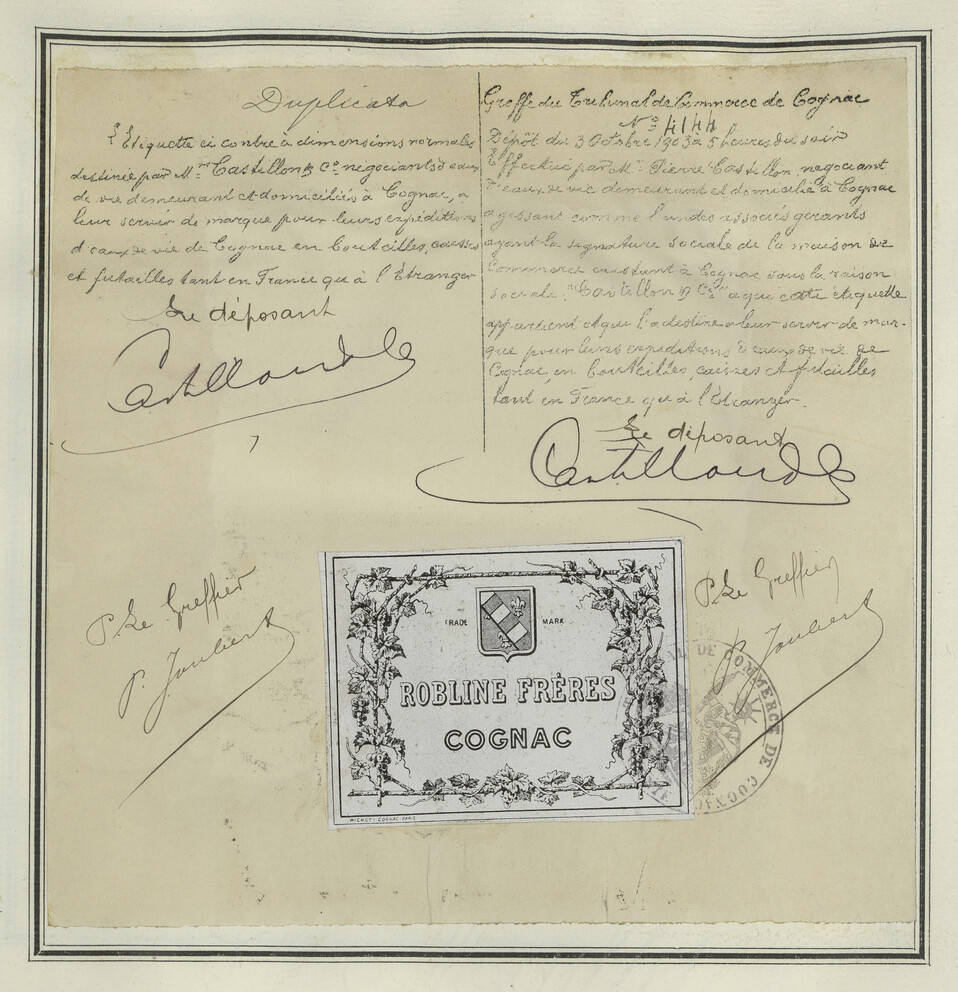 Duplicata
L'Etiquette ci contre à dimensions normales
destinée par M.rs Castillon & Co négociants d'eaux
de vie demeurant et domiciliés à Cognac, a
leur servir de marque pour leurs expéditions
d'eaux de vie de Cognac en bouteilles, caisses
et futailles tant en France qu'à l'Etranger
Le déposant
Castillon & Co
Greffe du Tribunal de Commerce de Cognac
No 4144
Dépôt du 3 Octobre 1903 à 5 heures du soir
Effectué par Mr Pierre Castillon, négociant
d'eaux de vie demeurant et domicilié à Cognac
agissant comme l'un des associés gérants
ayant la signature sociale de la maison de
Commerce existant à Cognac sous la raison
sociale: "Castillon & Co" a qui cette étiquette
appartient et qui l'a destine a leur servir de mar-
que pour leurs expéditions d'eaux de vie de
Cognac, en bouteilles, caisses et futailles
tant en France qu'à l'Etranger.
Le déposant
Castillon & Co
P. Le Greffier
P. Joubert
P. Le Greffier
P. Joubert
TRADE MARK
ROBLINE FRÈRES
COGNAC
DE COMMERCE DE COGNAC